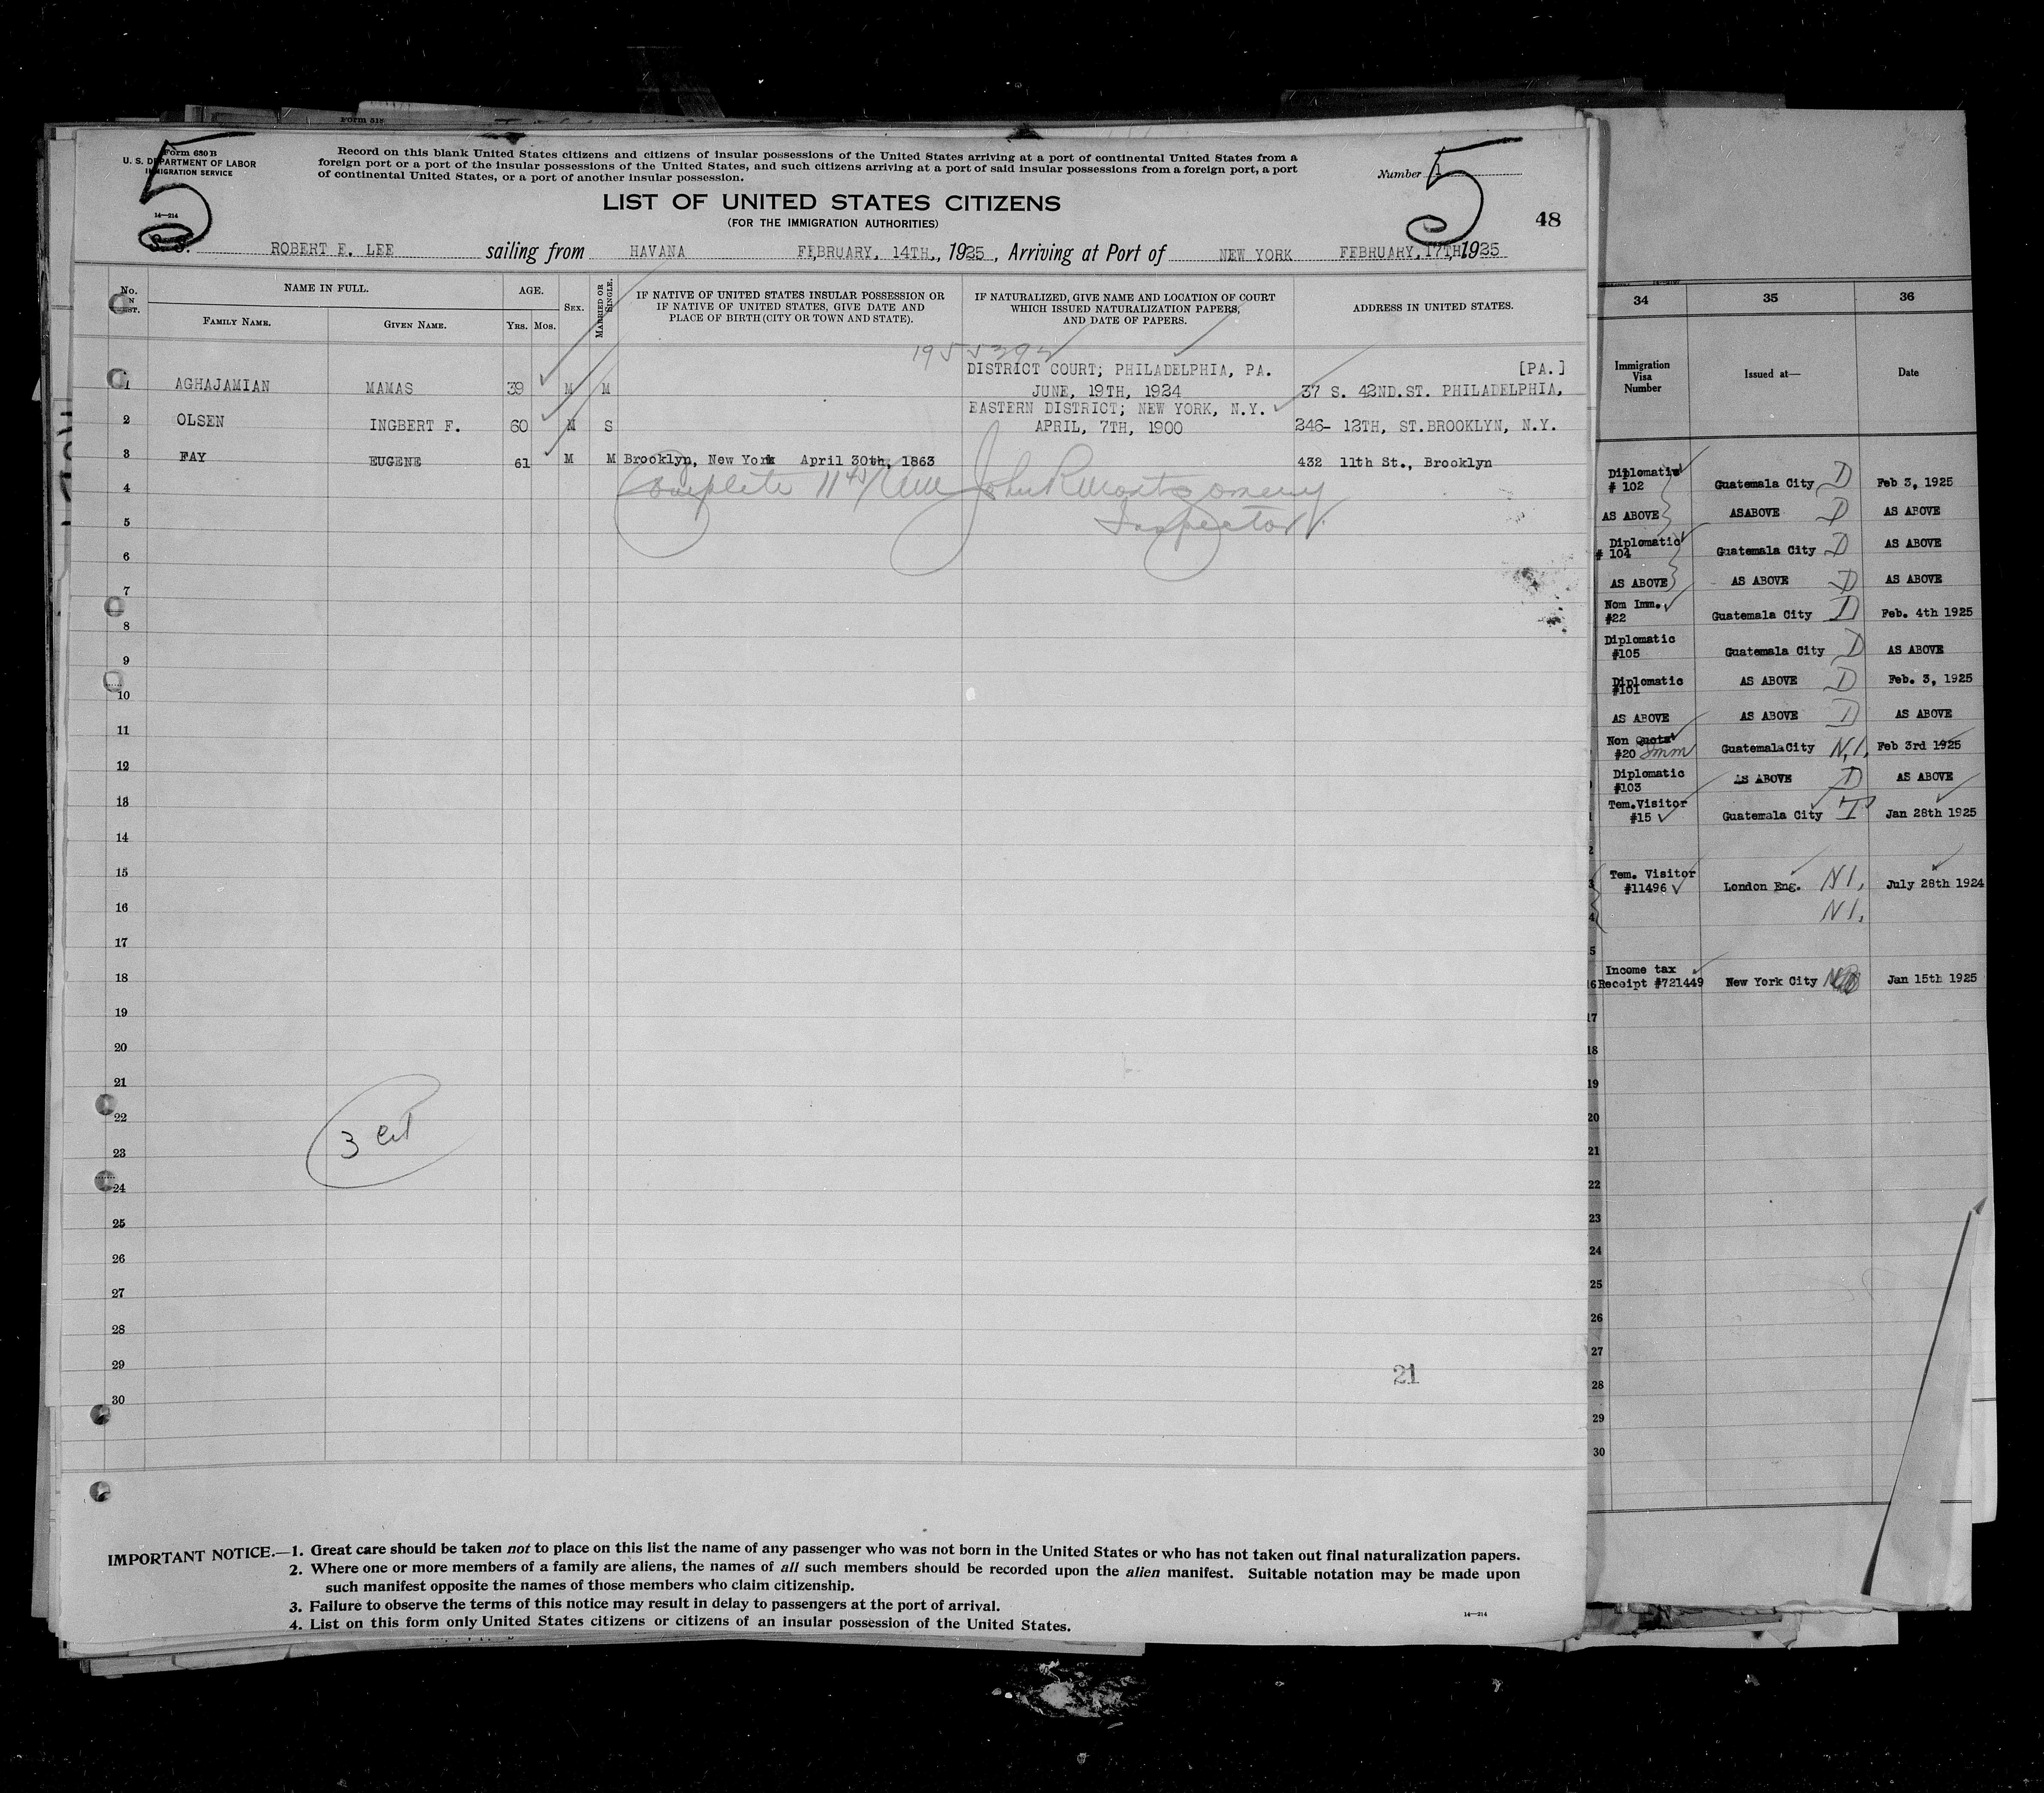 Form 630 B
U. S. DEPARTMENT OF LABOR
IMMIGRATION SERVICE
14—214
5
Record on this blank United States citizens and citizens of insular possessions of the United States arriving at a port of continental United States from a
foreign port or a port of the insular possessions of the United States, and such citizens arriving at a port of said insular possessions from a foreign port, a port
of continental United States, or a port of another insular possession.
Number
5
LIST OF UNITED STATES CITIZENS
(FOR THE IMMIGRATION AUTHORITIES)
48
S. S. ROBERT E. LEE sailing from HAVANA FEBRUARY, 14TH., 1925, Arriving at Port of NEW YORK FEBRUARY, 17TH, 1925
No. ON LIST.
NAME IN FULL.
FAMILY NAME. GIVEN NAME.
AGE.
Yrs. Mos.
SEX.
MARRIED OR SINGLE.
IF NATIVE OF UNITED STATES INSULAR POSSESSION OR
IF NATIVE OF UNITED STATES, GIVE DATE AND
PLACE OF BIRTH (CITY OR TOWN AND STATE).
IF NATURALIZED, GIVE NAME AND LOCATION OF COURT
WHICH ISSUED NATURALIZATION PAPERS,
AND DATE OF PAPERS.
ADDRESS IN UNITED STATES.
DISTRICT COURT; PHILADELPHIA, PA. [PA.]
1 AGHAJAMIAN MAMAS 39 M M JUNE, 19TH, 1924 37 S. 42ND.ST. PHILADELPHIA,
EASTERN DISTRICT; NEW YORK, N.Y.
2 OLSEN INGBERT F. 60 M S APRIL, 7TH, 1900 246- 12TH, ST.BROOKLYN, N.Y.
3 FAY EUGENE 61 M M Brooklyn, New York April 30th, 1863 432 11th St., Brooklyn
4 Complete 11 45 John R Montgomery
5 Inspector
6
7
8
9
10
11
12
13
14
15
16
17
18
19
20
21
22
3 cit
23
24
25
26
27
28
29
21
30
IMPORTANT NOTICE.—1. Great care should be taken not to place on this list the name of any passenger who was not born in the United States or who has not taken out final naturalization papers.
2. Where one or more members of a family are aliens, the names of all such members should be recorded upon the alien manifest. Suitable notation may be made upon
such manifest opposite the names of those members who claim citizenship.
3. Failure to observe the terms of this notice may result in delay to passengers at the port of arrival.
4. List on this form only United States citizens or citizens of an insular possession of the United States.
14—214
34 35 36
Immigration
Visa
Number
Issued at—
Date
Diplomatic
# 102 Guatemala City D Feb 3, 1925
AS ABOVE ASABOVE D AS ABOVE
Diplomatic
# 104 Guatemala City D AS ABOVE
AS ABOVE AS ABOVE D AS ABOVE
Nom Imm.
#22 Guatemala City D Feb. 4th 1925
Diplomatic
#105 Guatemala City D AS ABOVE
Diplomatic
#101 AS ABOVE D Feb. 3, 1925
AS ABOVE AS ABOVE D AS ABOVE
Non Quota
#20 Imm GuatemalaCity N.I. Feb 3rd 1925
Diplomatic
#103 AS ABOVE D AS ABOVE
Tem.Visitor
#15 Guatemala City T Jan 28th 1925
Tem. Visitor
#11496 London Eng. N I, July 28th 1924
N I,
5
Income tax
16 Receipt #721449 New York City Jan 15th 1925
17
18
19
20
21
22
23
24
25
26
27
28
29
30